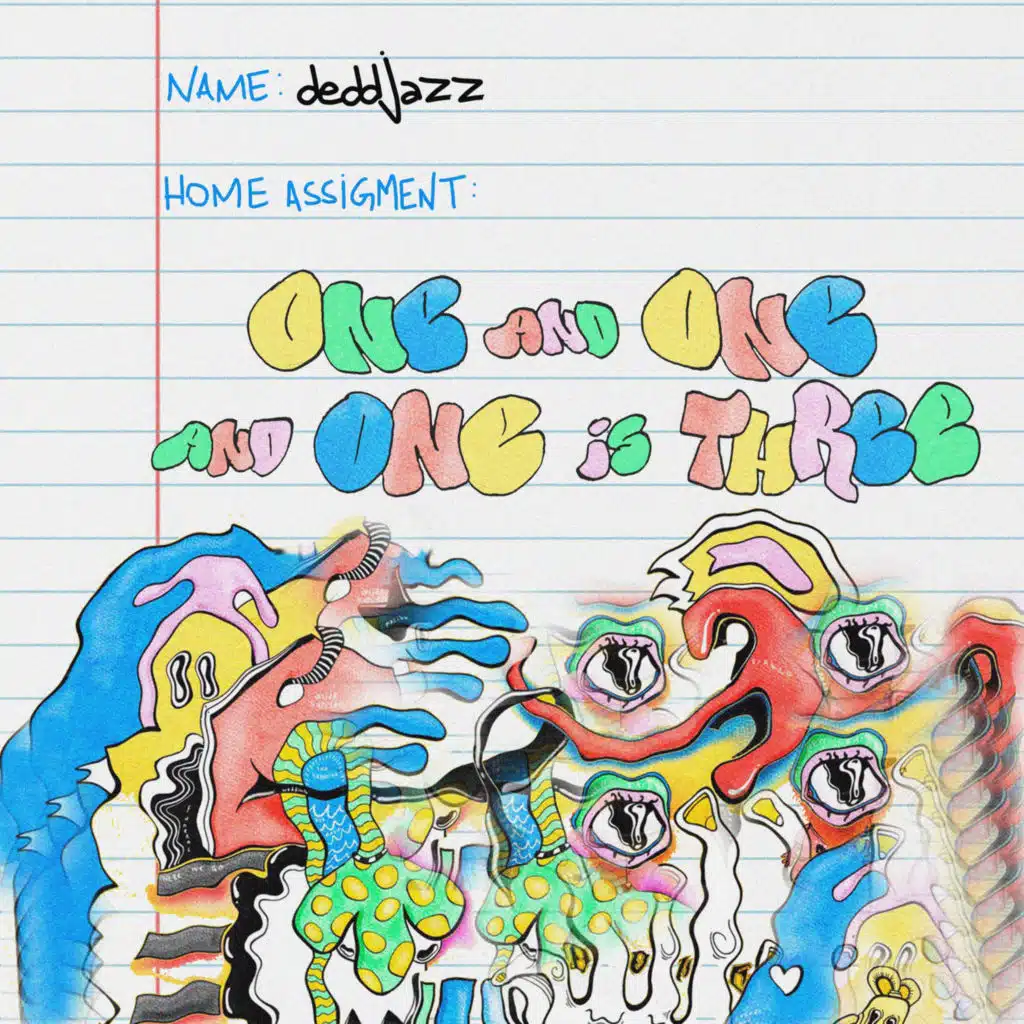 NAME: deddjazz
HOME ASSIGMENT:
ONE AND ONE
AND ONE is THREE
HERE WE GO